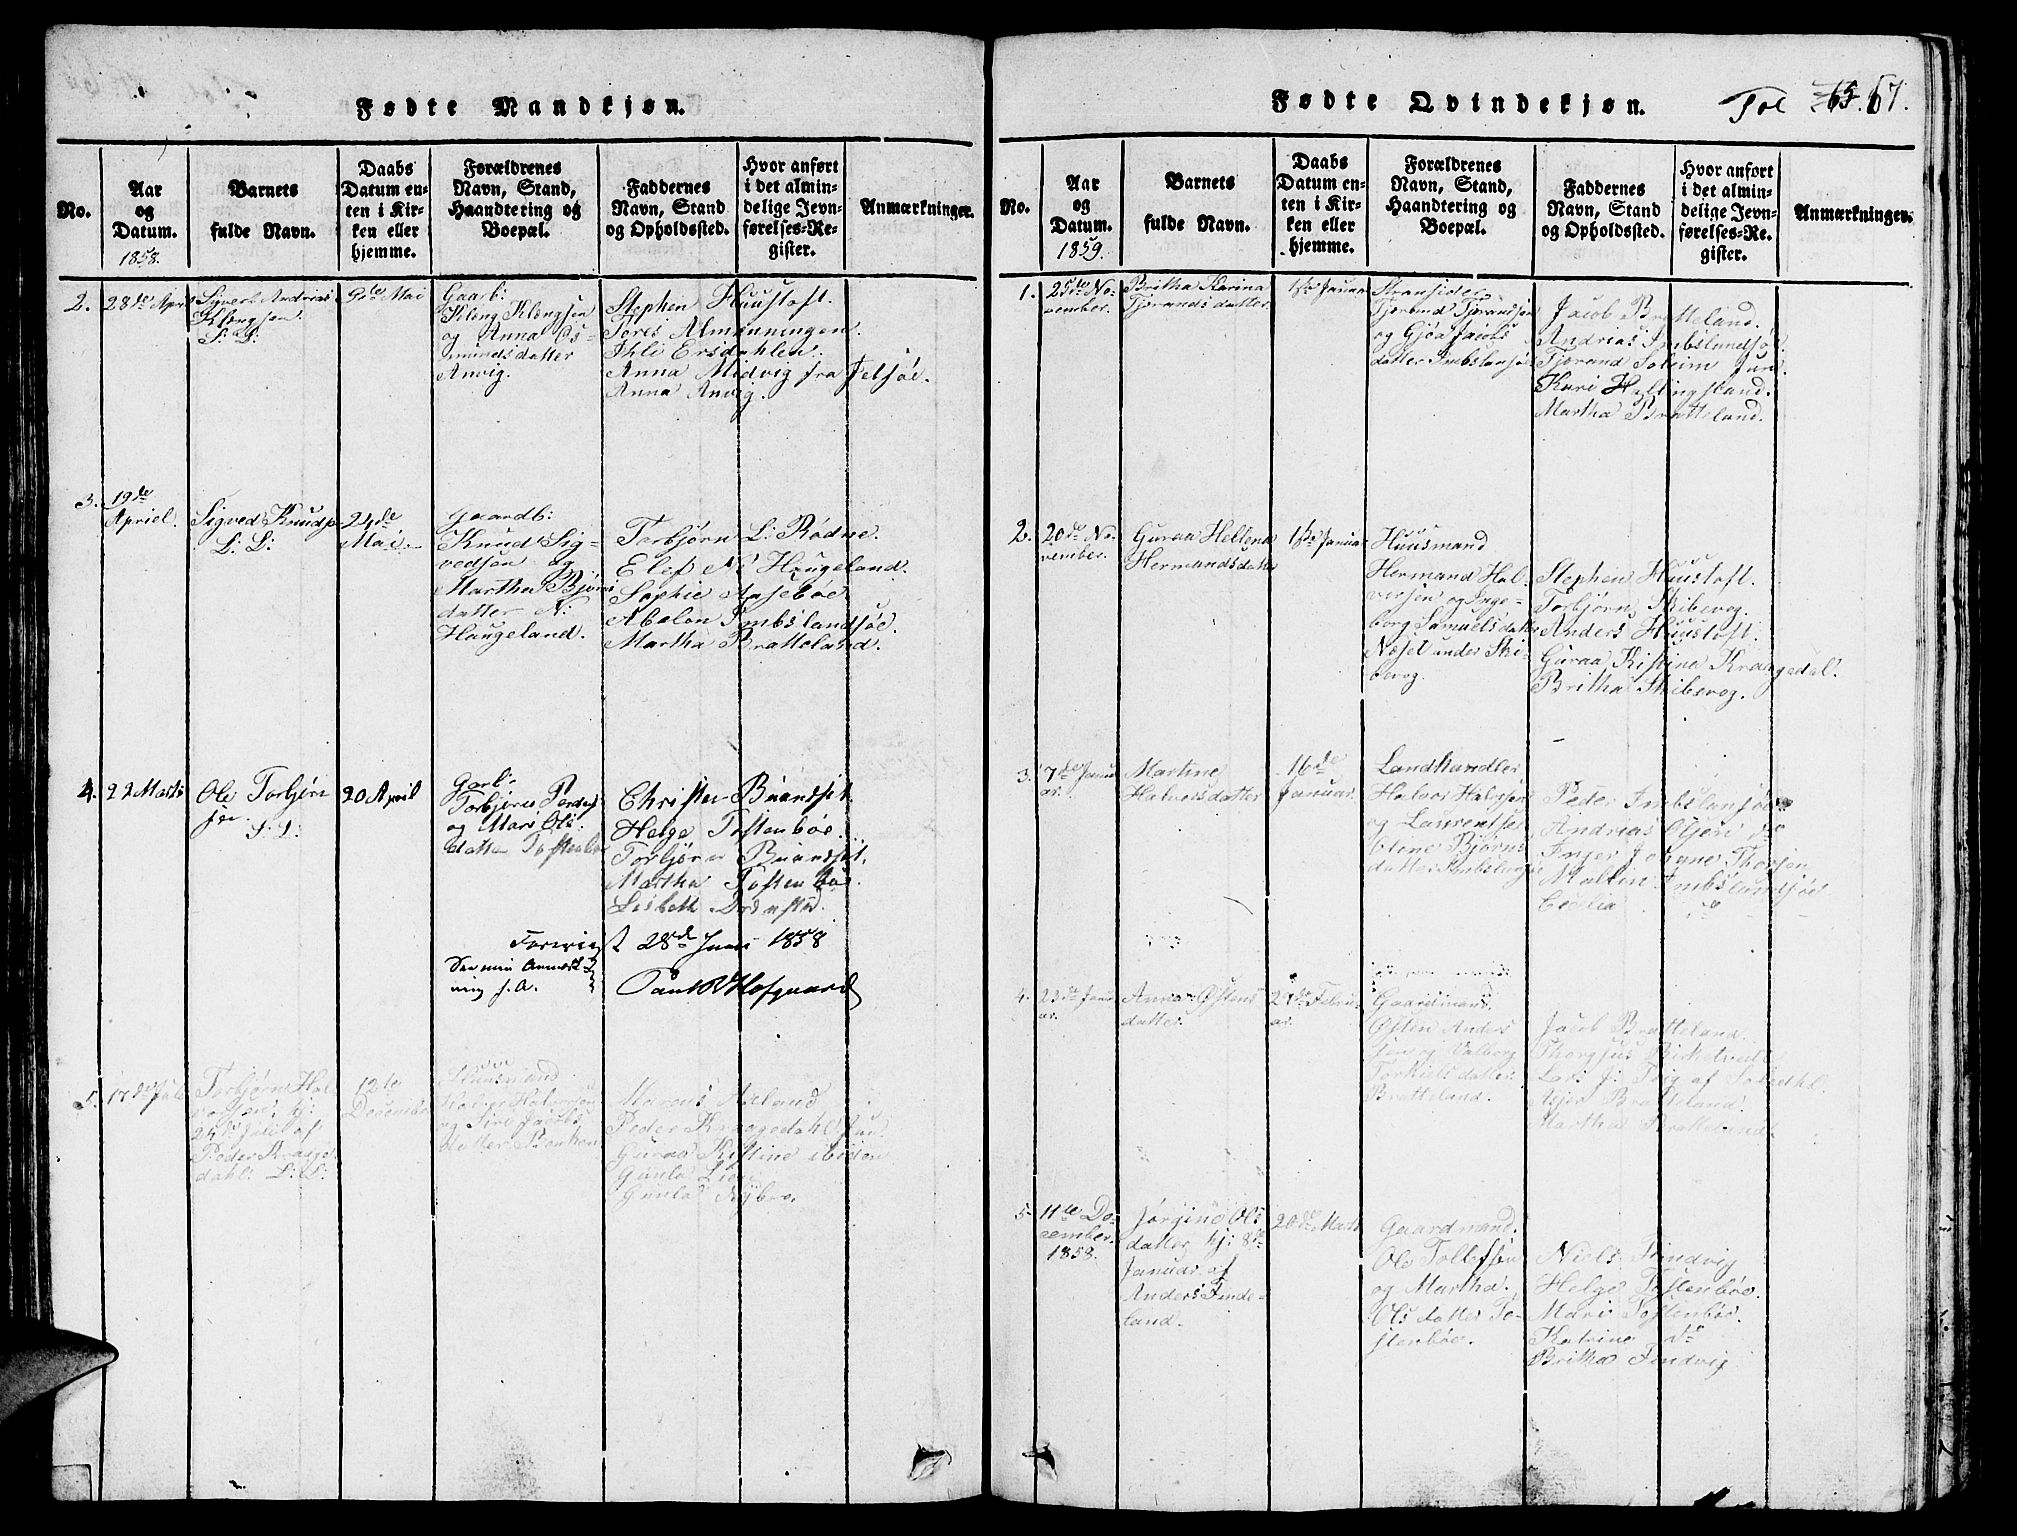 Fødte Mandkjøn.
No.
Aar
og
Datum.
1858.
Barnets
fulde Navn.
Daabs
Datum en-
ten i Kir-
ken eller
hjemme.
Forældrenes
Navn, Stand,
Haandtering og
Boepæl.
Faddernes
Navn, Stand
og Opholdssted.
Hvor anført
i det almin-
delige Jevn-
førelses-Re-
gister.
Anmærkninger.
2.
28de April
Sivert Andrias
Klongsen
L: L:
9de Mai
Gaarb:
Klong Klongsen
og Anna Os-
mundsdatter
Anvig.
Stephen Huustoft.
Tores Almanningen.
Ihle Ersdahlen.
Anna Midvig fra Jelsøe.
Anna Anvig.
3.
19de
Apriel.
Sigved Knuds
L: L:
24de
Mai.
Gaardb:
Knud Sig-
vedsen og
Martha Bjørns
datter N:
Haugeland.
Torbjørn L: Rødne.
Elef N Haugeland.
Sophie Aasebøe
Abelon Imbslandsøe.
Martha Bratteland.
4.
22 Marts
Ole Torbjørn
sen
L: L:
20 April
Garb:
Torbjørn Peders
og Mari Ols
datter Tostenbø
Christen Buandset.
Helge Tostenbøe.
Torbjørn Buandset.
Martha Tostenbøe.
Lisbeth
Foreviist 28de Juni 1858
See min Anmærk-
ning f. A.
Paul B Hofgaard
5.
17de Juli
Torbjørn Hal
vorsen, hj:
24de Juli af
Peder Krage
dahl: L: L:
12te
December
Huusmand
Halvor Halvorsen
og Siri Jacobs
datter Bakken
Marcus Aaland
Peder Kraggedahl Jun.
Guraa Kistine ibiden
Gunla Lien
Gunla Nybro.
Fødte Qvindekjøn.
Fol 65. 67.
No.
Aar
og
Datum.
1859.
Barnets
fulde Navn.
Daabs
Datum en-
ten i Kir-
ken eller
hjemme.
Forældrenes
Navn, Stand,
Haandtering og
Boepæl.
Faddernes
Navn, Stand
og Opholdssted.
Hvor anført
i det almin-
delige Jevn-
førelses-Re-
gister.
Anmærkninger.
1.
25de No-
vember.
Britha Karina
Tjerandsdatter
1ste Januar
Stransider
Tjerand Tjerandsen
og Gjøa Jacobs
datter Imbslansøe
Jacob Bratteland.
Andrias Imbslandsøe.
Tjerand Soleim Jun.
Kari Hellingsland.
Martha Bratteland.
2.
20de No-
vember.
Guraa Hellena
Hermandsdatte
1ste Januar
Huusmand
Hermand Hal-
versen og Inge-
borg Samuelsdatte
Næset under Ski-
bevog.
Stephen Huustoft.
Torbjørn Skibevog.
Anders Huustoft.
Guraa Kistine Kraagedal.
Britha Skibevog.
3.
7de Janu
ar.
Martine
Halversdatter
16de
Januar.
Landhandler
Halvor Halvorsen
og Laurentse
Oline Bjørns
datter Imbslansøe
Peder Imbslansøe
Andrias Olsen do
Inger Johane Thorsen
Maltin Imbslandsøe
Cecelia do
4.
23de Janu
ar.
Anna Østens
datter.
27de Febru-
ar.
Gaardmand
Østen Anders
sen og Valborg
Torkiels datter
Bratteland.
Jacob Bratteland.
Thorgsus Birketvedt
Lrs J: Trig af Solvedhl.
Asjer Bratteland.
Martha Bratteland.
5
11te De-
cember.
1858.
Jørgine Ols
datter hj: 8de
Januar af
Anders Finde-
land.
20de Marts
Gaardmand.
Ole Tollefsen
og Martha
Olsdatter To-
stenbøe.
Niels Findvig
Helge Tostenbøe.
Mari Tostenbøe.
Katrine do
Britha Findvig